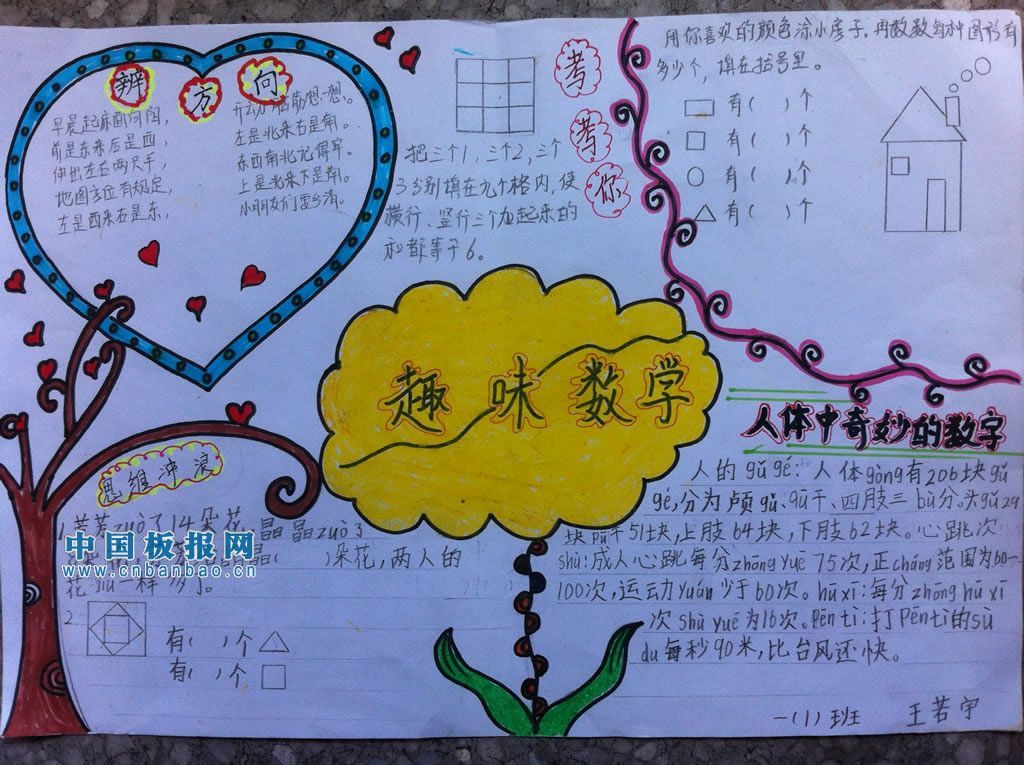 辨方向
早晨起床面向阳，
前是东来后是西，
伸出左右两只手，
地图方位有规定，
左是西来右是东，
开动脑筋想一想。
左是北来右是南。
东西南北记得牢。
上是北来下是南。
小朋友们要分清。
考考你
把三个1，三个2，三个
3分别填在九个格内，使
横行、竖行三个加起来的
和都等于6。
用你喜欢的颜色涂小房子，再数数每种图形有
多少个，填在括号里。
有（ ）个
有（ ）个
有（ ）个
有（ ）个
趣味数学
人体中奇妙的数字
人的gǔ gé：人体gòng有206块gǔ
gé，分为颅gǔ、qū干、四肢三bù分。头gǔ29
块qū干51块，上肢64块，下肢62块。心跳次
shù：成人心跳每分zhōng yuē 75次，正cháng范围为60—
100次，运动yuán少于60次。hū xī：每分zhōng hū xī
次shù yuē为16次。Pēn tì：打Pēn tì的sù
du每秒90米，比台风还快。
思维冲浪
1.芳芳zuò了14朵花，晶晶zuò了
晶（ ）朵花，两人的
花jiù一样多了。
2.
有（ ）个
有（ ）个
中国板报网
www.cnbanbao.cn
一（1）班 王若宇